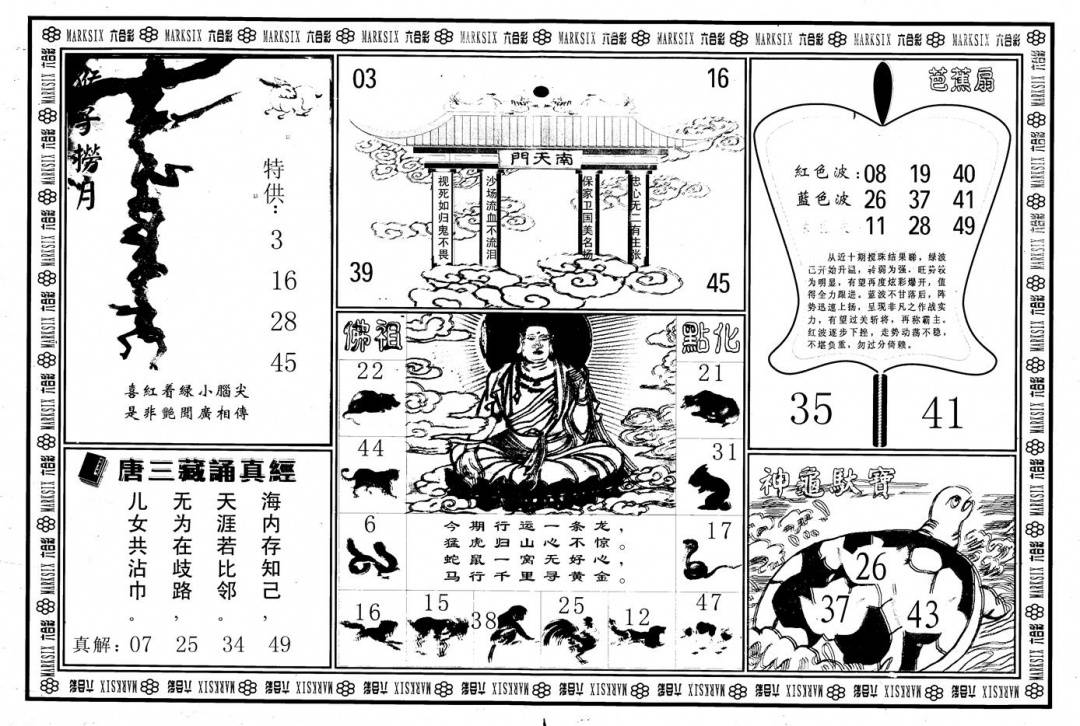 MARKSIX 六合彩 MARKSIX 六合彩 MARKSIX 六合彩 MARKSIX 六合彩 MARKSIX 六合彩 MARKSIX 六合彩 MARKSIX 六合彩 MARKSIX 六合彩 MARKSIX 六合彩 MARKSIX 六合彩
猴子撈月
特供：
3
16
28
45
喜紅着緑小腦尖
是非艷聞廣相傳
唐三藏誦真經
海内存知己，
天涯若比邻。
无为在歧路，
儿女共沾巾。
真解：07 25 34 49
03
16
南天門
视死如归鬼不畏
沙场流血不流泪
保家卫国美名扬
忠心无二有主张
39
45
佛祖
點化
22
44
6
21
31
17
今期行运一条龙，
猛虎归山心不惊。
蛇鼠一窝无好心，
马行千里寻黄金。
16
15
38
25
12
47
芭蕉扇
紅色波：08 19 40
藍色波 26 37 41
11 28 49
从近十期搅珠结果睇，绿波
已开始升温，转弱为强，旺势较
为明显，有望再度炫彩爆开，值
得全力跟进。蓝波不甘落后，阵
势迅速上扬，呈现非凡之作战实
力，有望过关斩将，再称霸主。
红波逐步下挫，走势动荡不稳，
不堪负重，勿过分倚赖。
35
41
神龜馱寶
26
37
43